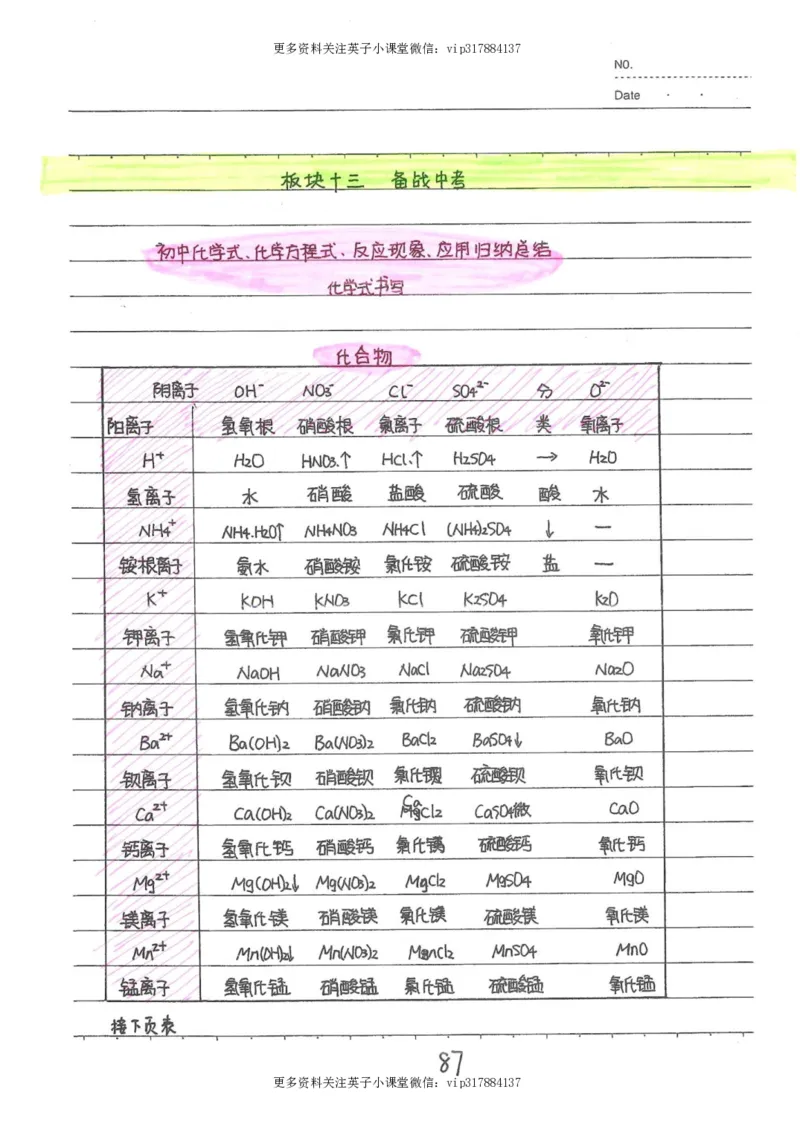 更多资料关注英子小课堂微信：vip317884137
NO.
Date
板块十三 备战中考
初中化学式、化学方程式、反应现象、应用归纳总结
化学式书写
化合物
阴离子 OH⁻ NO₃⁻ Cl⁻ SO₄²⁻ 分 O²⁻
阳离子 氢氧根 硝酸根 氯离子 硫酸根 类 氧离子
H⁺ H₂O HNO₃.↑ HCl.↑ H₂SO₄ → H₂O
氢离子 水 硝酸 盐酸 硫酸 酸 水
NH₄⁺ NH₄.H₂O↑ NH₄NO₃ NH₄Cl (NH₄)₂SO₄ ↓ —
铵根离子 氨水 硝酸铵 氯化铵 硫酸铵 盐 —
K⁺ KOH KNO₃ KCl K₂SO₄ K₂O
钾离子 氢氧化钾 硝酸钾 氯化钾 硫酸钾 氧化钾
Na⁺ NaOH NaNO₃ NaCl Na₂SO₄ Na₂O
钠离子 氢氧化钠 硝酸钠 氯化钠 硫酸钠 氧化钠
Ba²⁺ Ba(OH)₂ Ba(NO₃)₂ BaCl₂ BaSO₄↓ BaO
钡离子 氢氧化钡 硝酸钡 氯化钡 硫酸钡 氧化钡
Ca²⁺ Ca(OH)₂ Ca(NO₃)₂ CaCl₂ CaSO₄微 CaO
钙离子 氢氧化钙 硝酸钙 氯化镁 硫酸钙 氧化钙
Mg²⁺ Mg(OH)₂↓ Mg(NO₃)₂ MgCl₂ MgSO₄ MgO
镁离子 氢氧化镁 硝酸镁 氯化镁 硫酸镁 氧化镁
Mn²⁺ Mn(OH)₂↓ Mn(NO₃)₂ MnCl₂ MnSO₄ MnO
锰离子 氢氧化锰 硝酸锰 氯化锰 硫酸锰 氧化锰
接下页表
87
更多资料关注英子小课堂微信：vip317884137